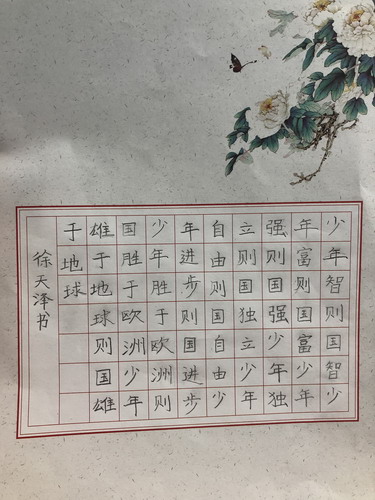 少年智则国智少
年富则国富少年
强则国强少年独
立则国独立少年
自由则国自由少
年进步则国进步
少年胜于欧洲则
国胜于欧洲少年
雄于地球则国雄
于地球
徐天泽书